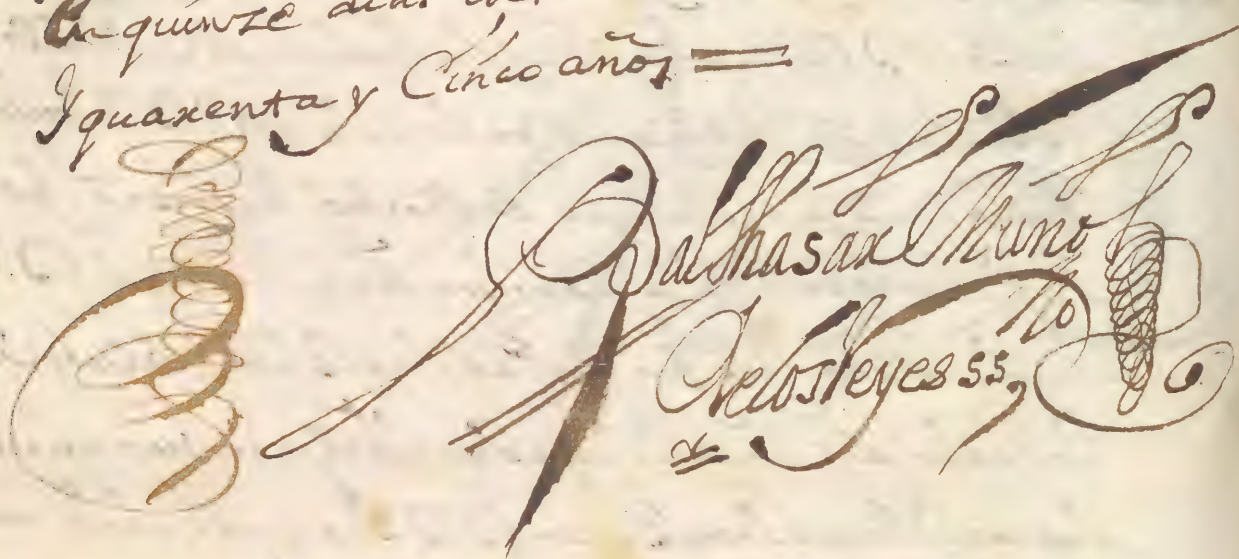 En quinze dias
Y quarenta y Cinco años
Balthasar Muño
de los Reyes ss,